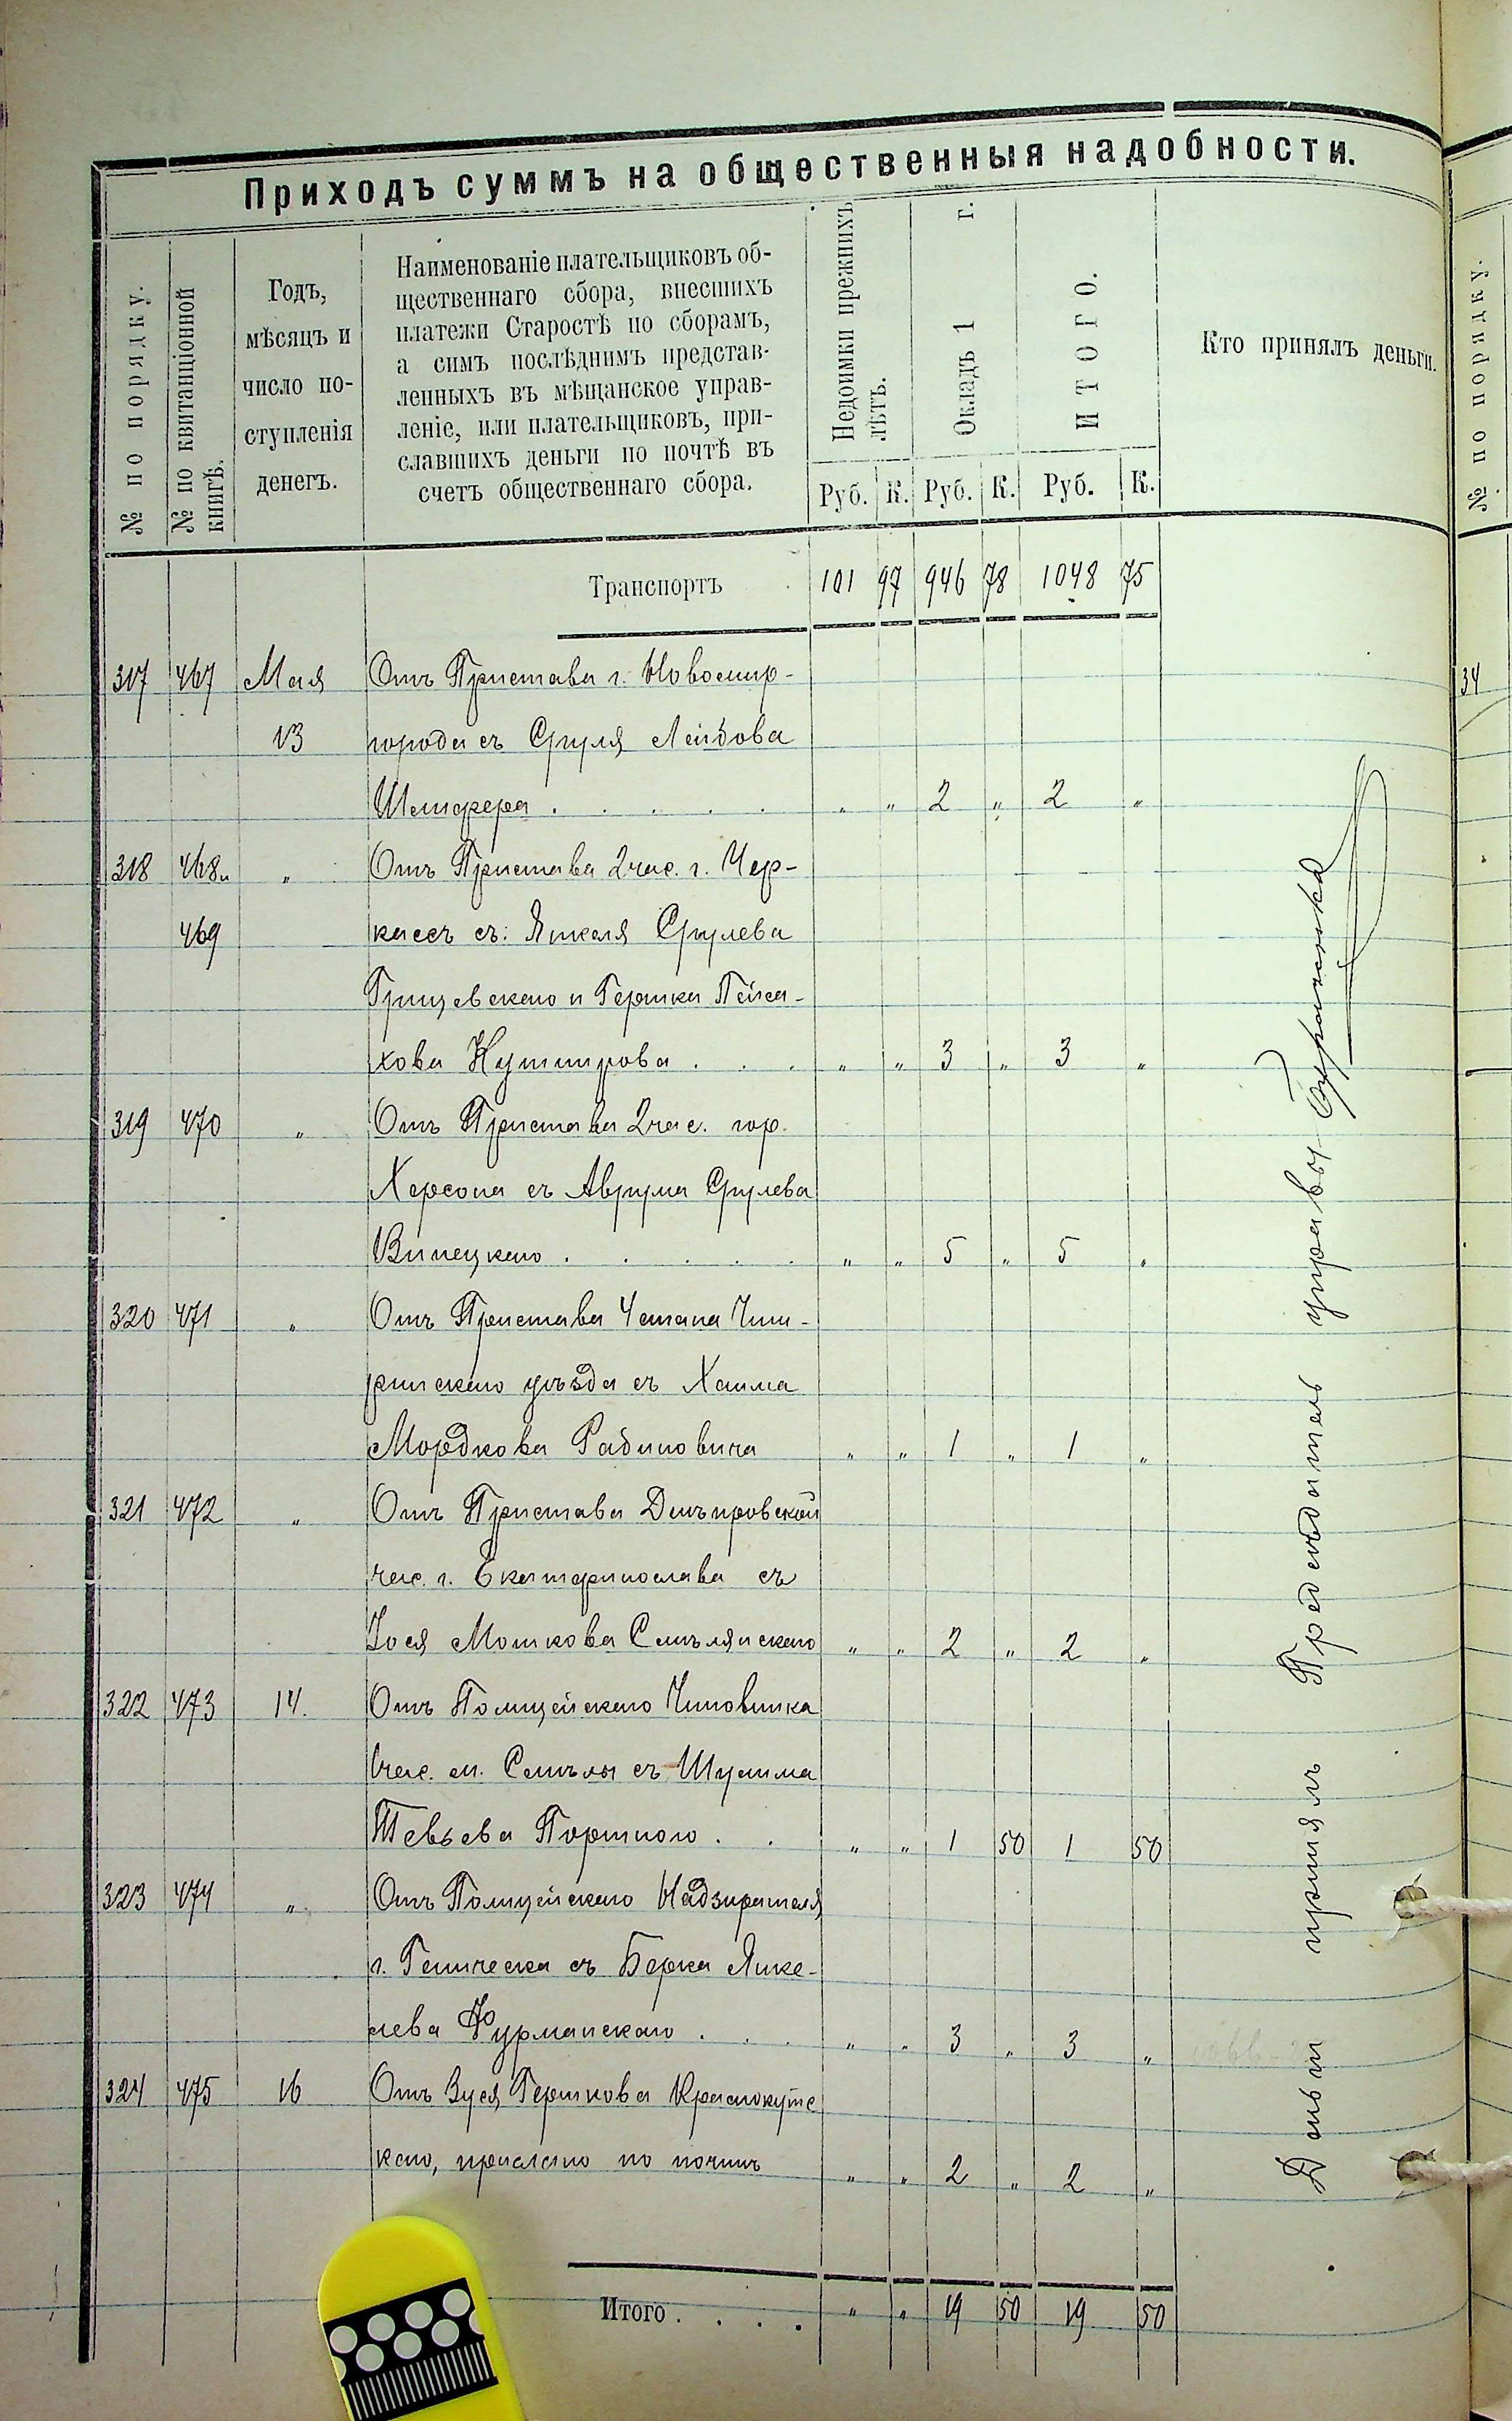 Приходъ суммъ на общественныя надобности.
№ по порядку.
№ по квитанціонной
книгѣ.
Годъ,
мѣсяцъ и
число по-
ступленія
денегъ.
Наименованіе плательщиковъ об-
щественнаго сбора, внесшихъ
платежи Старостѣ по сборамъ,
а симъ послѣднимъ представ-
ленныхъ въ мѣщанское управ-
леніе, или плательщиковъ, при-
славшихъ деньги по почтѣ въ
счетъ общественнаго сбора.
Недоимки прежнихъ
лѣтъ.
Окладъ 1 г.
ИТОГО.
Руб. К. Руб. К. Руб. К.
Кто принялъ деньги.
№ по порядку.
Транспортъ 101 97 946 78 1048 75
317 467 Мая Отъ Пристава г. Новомир-
13 города съ Сруля Лейбова
Шемфера . . . . . „ „ 2 „ 2 „
318 468 и „ Отъ Пристава 2 час. г. Чер-
469 кассъ съ: Янкеля Срулева
Грищевскаго и Гершка Пейса-
хова Кушнирова . . . „ „ 3 „ 3 „
319 470 „ Отъ Пристава 2 час. гор.
Херсона съ Аврума Срулева
Винецкаго . . . . . „ „ 5 „ 5 „
320 471 „ Отъ Пристава 4 стана Чиги-
ринскаго уѣзда съ Хаима
Мордкова Рабиновича „ „ 1 „ 1 „
321 472 „ Отъ Пристава Днѣпровской
час. г. Екатеринослава съ
Іося Мошкова Смѣлянскаго „ „ 2 „ 2 „
322 473 14. Отъ Полицейскаго Чиновника
1 час. м. Смѣлы съ Шулима
Тевьева Портного . . „ „ 1 50 1 50
323 474 „ Отъ Полицейскаго Надзирателя
г. Геническа съ Берка Янке-
лева Фурманскаго . . . „ „ 3 „ 3 „
324 475 16 Отъ Зуся Гершкова Краснокутс
каго, прислано по почтѣ „ „ 2 „ 2 „
Итого . . . . „ „ 19 50 19 50
Деньги принялъ Предсѣдатель управы
34